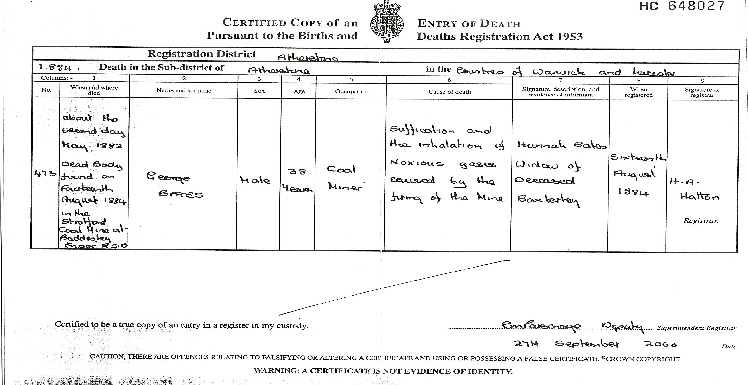 HC 648027
CERTIFIED COPY OF AN ENTRY OF DEATH
Pursuant to the Births and Deaths Registration Act 1953
Registration District Atherstone
1884. Death in the Sub-district of Atherstone in the Counties of Warwick and Leicester
Columns:- 1 2 3 4 5 6 7 8 9
No. When and where died Name and surname Sex Age Occupation Cause of death Signature, description, and residence of informant When registered Signature of registrar
473
about the
second day
May 1882
Dead Body
found on
Fourteenth
August 1884
in the
Stratford
Coal Mine at
Baddesley
Ensor R.S.D
George
Male
38
Years
Coal
Miner
Suffocation and
the inhalation of
Noxious gases
caused by the
firing of the Mine
Hannah
Widow of
Deceased
Sixteenth
August
1884
H.A.
Halton
Registrar
Certified to be a true copy of an entry in a register in my custody.
Deputy Superintendent Registrar
27th September 2000 Date
CAUTION, THERE ARE OFFENCES RELATING TO FALSIFYING OR ALTERING A CERTIFICATE AND USING OR POSSESSING A FALSE CERTIFICATE. ©CROWN COPYRIGHT
WARNING: A CERTIFICATE IS NOT EVIDENCE OF IDENTITY.